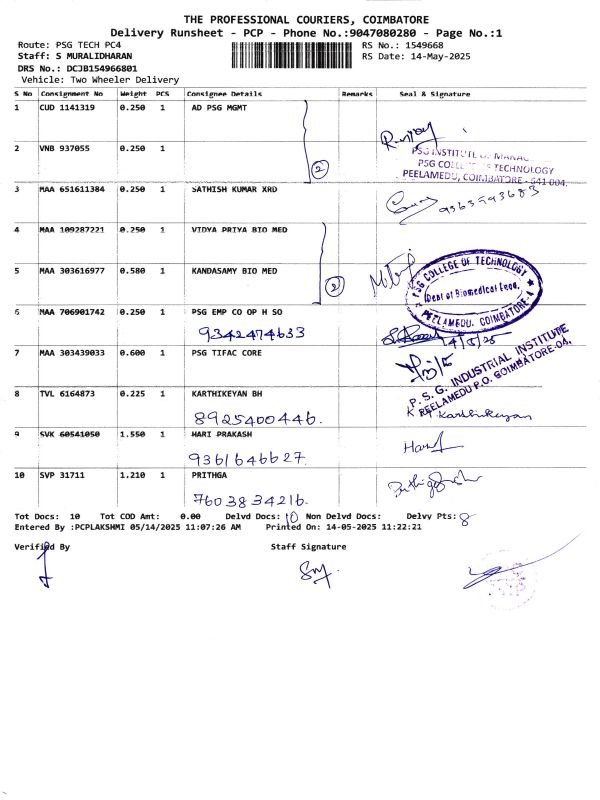 THE PROFESSIONAL COURIERS, COIMBATORE
Delivery Runsheet - PCP - Phone No.:9047080280 - Page No.:1
Route: PSG TECH PC4 RS No.: 1549668
Staff: S MURALIDHARAN RS Date: 14-May-2025
DRS No.: DCJB154966801
Vehicle: Two Wheeler Delivery
S No Consignment No Weight PCS Consignee Details Remarks Seal & Signature
1 CUD 1141319 0.250 1 AD PSG MGMT
2 VNB 937055 0.250 1
2
PSG INSTITUTE OF
PSG COLLEGE OF TECHNOLOGY
PEELAMEDU, COIMBATORE - 641 004.
3 MAA 651611384 0.250 1 SATHISH KUMAR XRD
9363593683
4 MAA 109287221 0.250 1 VIDYA PRIYA BIO MED
5 MAA 303616977 0.580 1 KANDASAMY BIO MED
2
PSG COLLEGE OF TECHNOLOGY
Dept of Biomedical Engg.
PEELAMEDU, COIMBATORE-4
6 MAA 706901742 0.250 1 PSG EMP CO OP H SO
9342474633
14/5/25
7 MAA 303439033 0.600 1 PSG TIFAC CORE
P. S. G. INDUSTRIAL INSTITUTE
PEELAMEDU P.O. COIMBATORE-04.
8 TVL 6164873 0.225 1 KARTHIKEYAN BH
8925400446.
Karthikeyan
9 SVK 60541050 1.550 1 HARI PRAKASH
9361646627
Hari
10 SVP 31711 1.210 1 PRITHGA
7603834216.
Tot Docs: 10 Tot COD Amt: 0.00 Delvd Docs: 10 Non Delvd Docs: Delvy Pts: 8
Entered By :PCPLAKSHMI 05/14/2025 11:07:26 AM Printed On: 14-05-2025 11:22:21
Verified By Staff Signature